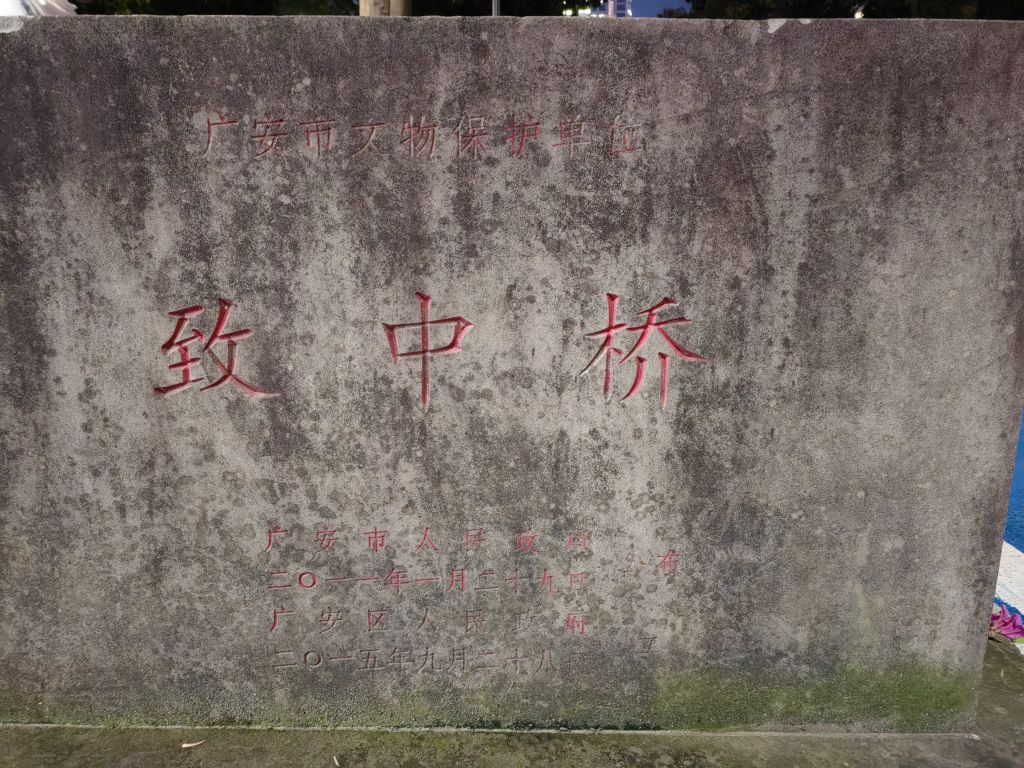 广安市文物保护单位
致中桥
广安市人民政府
二〇一一年一月二十九日
公布
广安区人民政府
二〇一五年九月二十八日
立